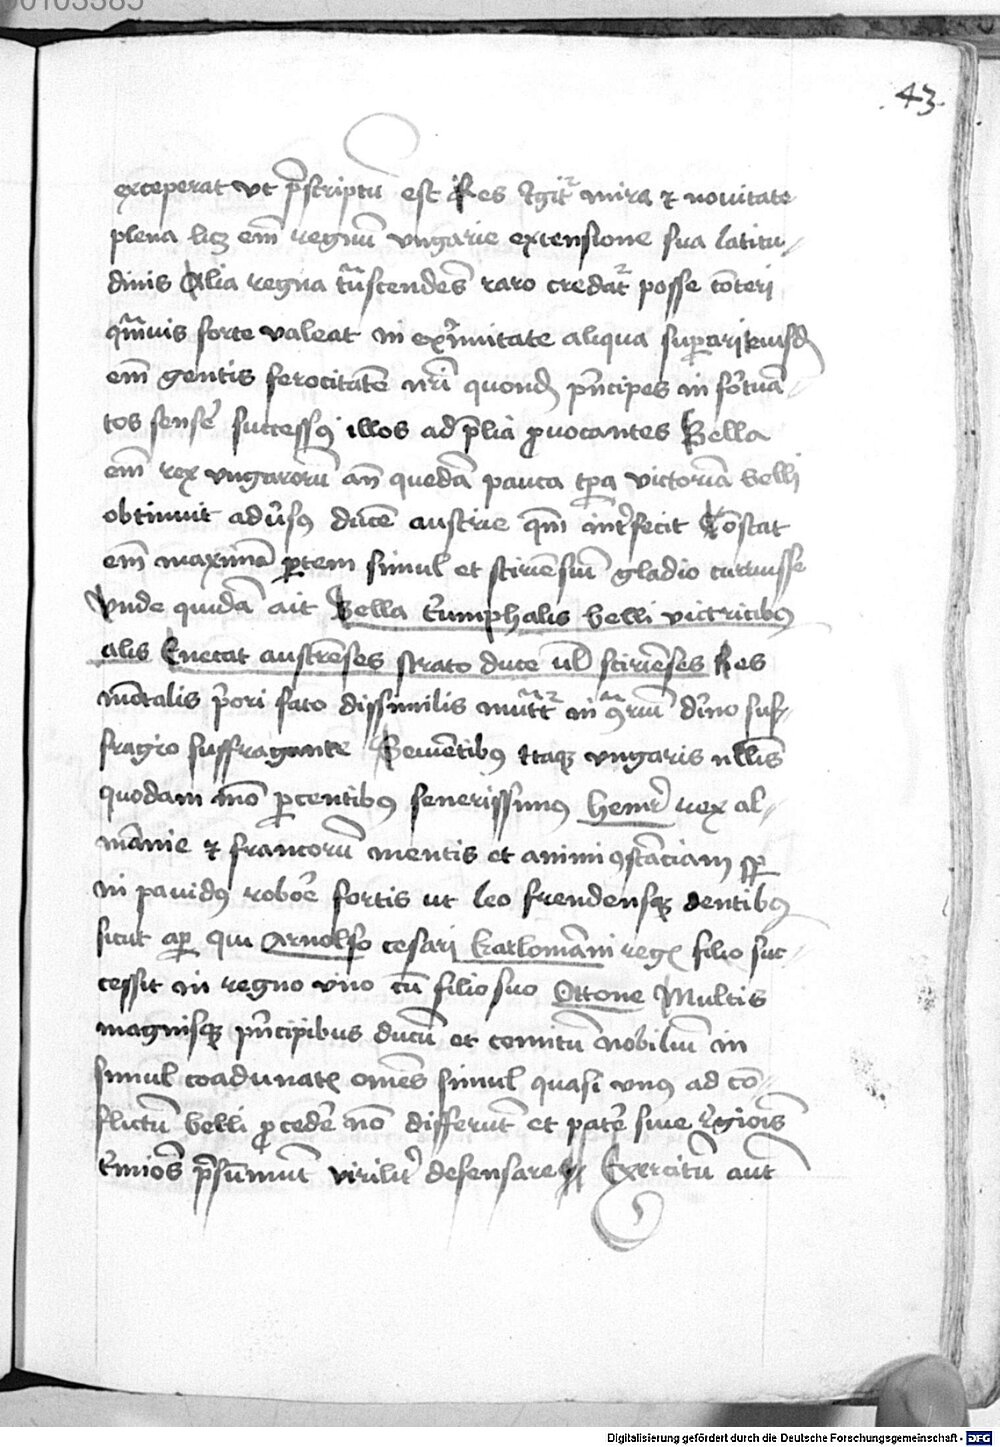 00103385
43.
exceperat vt p̄scriptū est Res Igit᷑ mira ⁊ nouitate
plena licȝ em̄ regnū vngarie extensione sua latitu-
dinis Alia regna trāscendēs raro credat᷑ posse cōteri
qm̄uis forte valeat in ext̄mitate aliqua suꝑari euisdē
em̄ gentis ferocitatē nr̄i quondā p̄ncipes in fortuā-
tos senser̄ successꝰ illos ad p̄lia ꝓuocantes Bella
em̄ rex vngarorū an̄ quedā pauca tꝑa victoriā belli
obtinuit aduʼsꝰ ducē austrie quē int̓fecit Cōstat
em̄ maximā ꝑtem simul et stiriēsiū gladio corruisse
Vnde quidā ait Bella t̓umphalis belli victricibꝰ
alis Enecat austrēses strato duce vl̄ stiriēses Res
mōtalis p̓ori fato dissimilis mutat᷑ in ꝯtrariū diuīo suf-
fragio suffragante Seuiētibꝰ itaqꝫ vngaris nullis
quodam mō ꝑcentibꝰ serenissimꝰ heinr̄ rex al-
mānie ⁊ francorū mentis et animi ꝯstāciam sꝑ
in pauidꝰ robore fortis ut leo frendensqꝫ dentibꝰ
sicut aꝑ qui Arnolfo cesari karlomāni regꝭ filio suc-
cessit in regno vno cū filio suo Ottone Multis
magnisqꝫ p̄ncipibus ducū et comitū nobiliū in
simul coadunatꝭ om̄es simul quasi vnꝰ ad cō-
flictū belli ꝓcedere nō differūt et patrie siue regiōis
t̓mīos p̄sūmūt virilit̓ defensare Exercitū aut̄
Digitalisierung gefördert durch die Deutsche Forschungsgemeinschaft - DFG